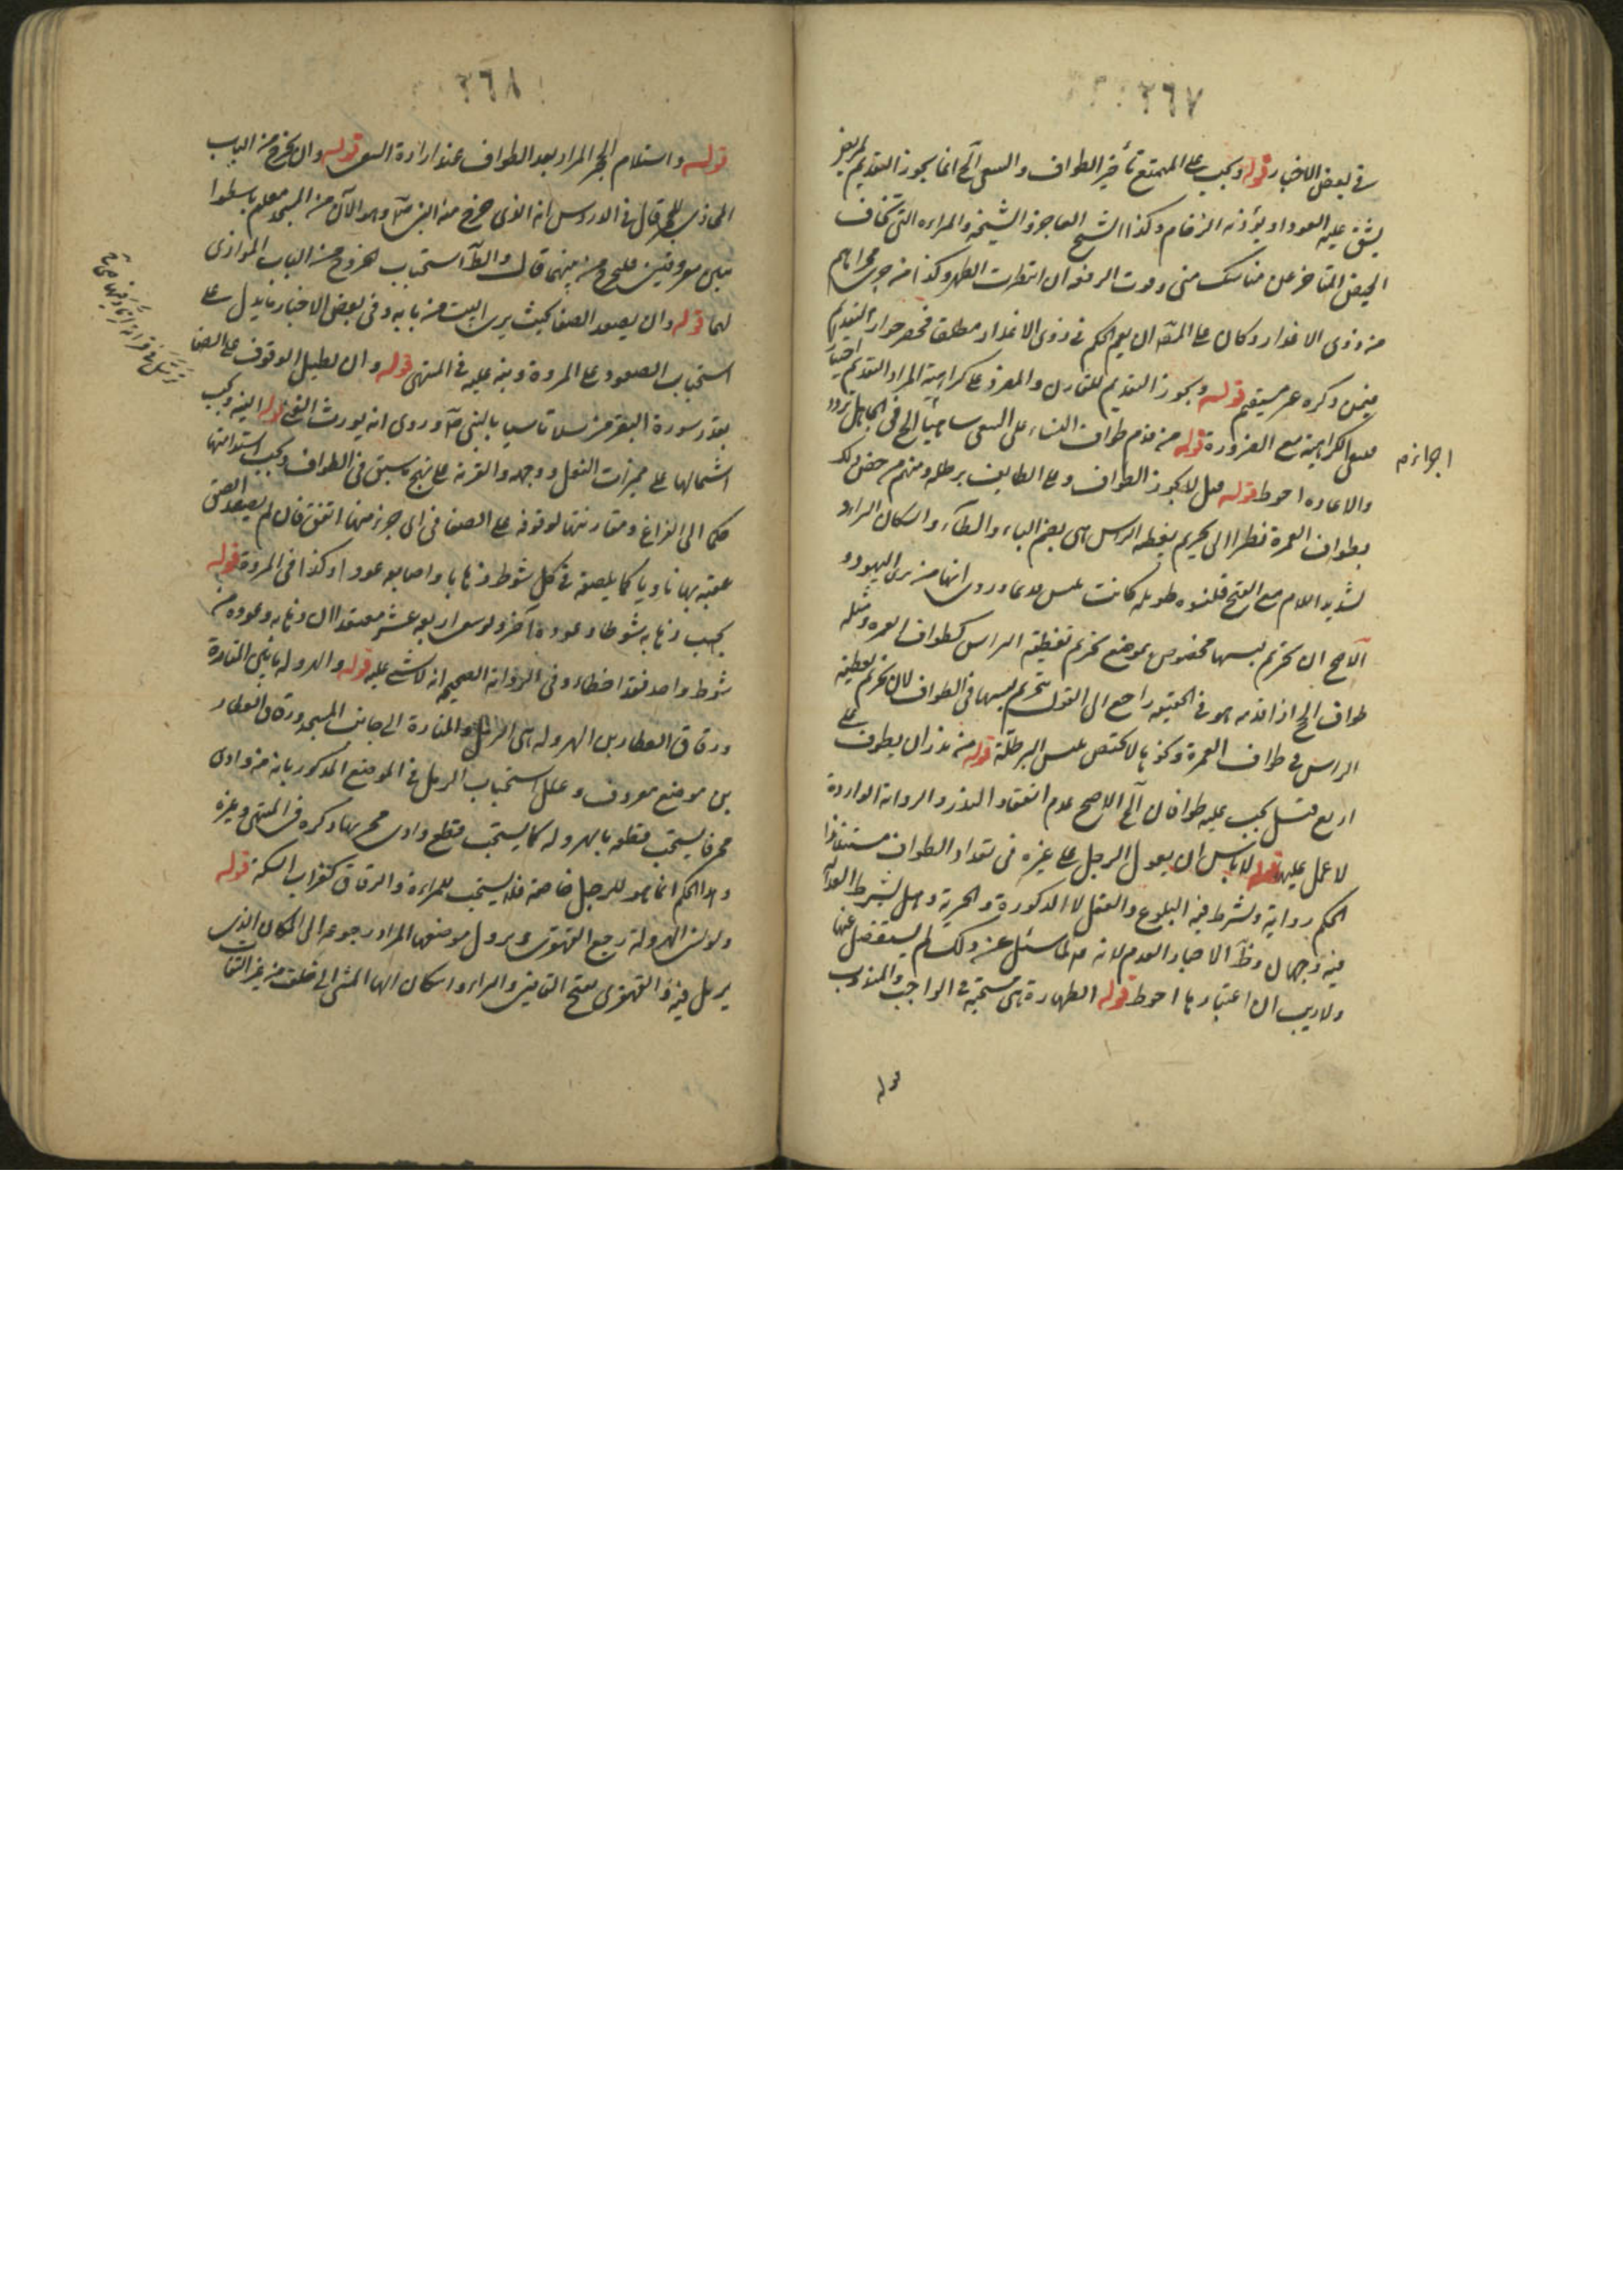 ٢٦٧
في بعض الاخبار قوله ويجب على المتمتع تأخير الطواف والسعي الخ انما يجوز التقديم لمريض
يشق عليه العود او يؤذيه الزحام وكذا الشيخ العاجز والشيخة والمراءه التي تخاف
الحيض المتأخر عن مناسك منى وفوت الرفقة ان انتظرت الطهر وكذا من جرى مجراهم
من ذوى الاعذار وكان على المصـ ان يعم الحكم في ذوى الاعذار مطلقا فحصر جواز التقديم
فيمن ذكره غير مستقيم قوله ويجوز التقديم للقارن والمفرد على كراهية المراد التقديم اختيارا
فينتفى الكراهية مع الضرورة قوله من قدم طواف النساء على السعى ساهيا الخ في الجاهل تردد
اجوائم
والاعاده احوط قوله قيل لا يجوز الطواف وعلى الطايف برطلة ومنهم من خص ذلك
بطواف العمرة نظرا الى تحريم تغطية الراس هى بضم الباء والطاء واسكان الراء و
تشديد اللام مع الفتح قلنسوه طويله كانت تلبس قديما وروى انها من زى اليهود و
الاصح ان تحريم لبسها مخصوص بموضع تحريم تغطية الراس كطواف العمره ومثله
طواف الحج اذا قدمه هو في الحقيقة راجع الى القول بتحريم لبسها في الطواف لان تحريم تغطية
الراس في طواف العمرة وكونها لا يختص بلبس البرطلة قوله من نذر ان يطوف على
اربع قيل يجب عليه طوافان الخ الاصح عدم انعقاد النذر والرواية الواردة
لا عمل عليها قوله لا باس ان يعول الرجل على غيره في تعداد الطواف مستند هذا
الحكم رواية ويشترط فيه البلوغ والعقل لا الذكورة والحرية وهل يشترط العدالة
فيه وجهان وظـ الاخبار العدم لانه ع لما سئل عن ذلك لم يستفصل عنها
ولا ريب ان اعتبارها احوط قوله الطهارة هى مستحبة في الواجب والمندوب
قوله
٢٦٨
قوله واستلام الحجر المراد بعد الطواف عند ارادة السعى قوله وان يخرج من الباب
المحاذى للحجر قال في الدروس انه الذى خرج منه النبى صـ وهو الآن من المسجد معلم باسطوا
نتين معروفتين فليخرج من بينهما قال والظـ استحباب الخروج من الباب الموازى
لهما قوله وان يصعد الصفا بحيث يرى البيت من بابه وفى بعض الاخبار ما يدل على
استحباب الصعود على المروة ونبه عليه في المنتهى قوله وان يطيل الوقوف على الصفا
بقدر سورة البقره مترسلا تاسيا بالنبى صـ وروى انه يورث الغنى قوله النيه ويجب
اشتمالها على مميزات الفعل ووجهه والقربة على نهج ما سبق في الطواف ويجب استدامتها
حكما الى الفراغ ومقارنتها لوقوفه على الصفا في اى جزء منها اتفق فان لم يصعد الصق
عقبه بها ناويا كما يلصقه في كل شوط ذهابا واصابعه عودا وكذا في المروة قوله
يحسب ذهابه شوطا وعوده آخر ولو سعى اربعة عشر معتقدا ان ذهابه وعوده
شوط واحد فقد اخطاء وفى الرواية الصحيحة انه لا شئ عليه قوله والهرولة ما بين المنارة
وزقاق العطارين الهرولة هى الرمل والمنارة الى جانب المسجد وزقاق العطار
ين موضع معروف وعلل استحباب الرمل في الموضع المذكور بانه من وادى
محسر فاستحب قطعه بالهروله كما يستحب قطع وادى محسر بها ذكره في المنتهى وغيره
وهذا الحكم انما هو للرجل خاصة فلا يستحب للمراءة والزقاق كغراب السكة قوله
ولو نسى الهرولة رجع القهقرى وهرول موضعها المراد رجوعه الى المكان الذى
يرمل فيه والقهقرى بفتح القافين والراء واسكان الهاء المشى الى خلف من غير التفات